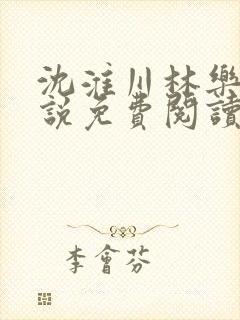 沈淮川林樂
說免費閱讀
李會芬